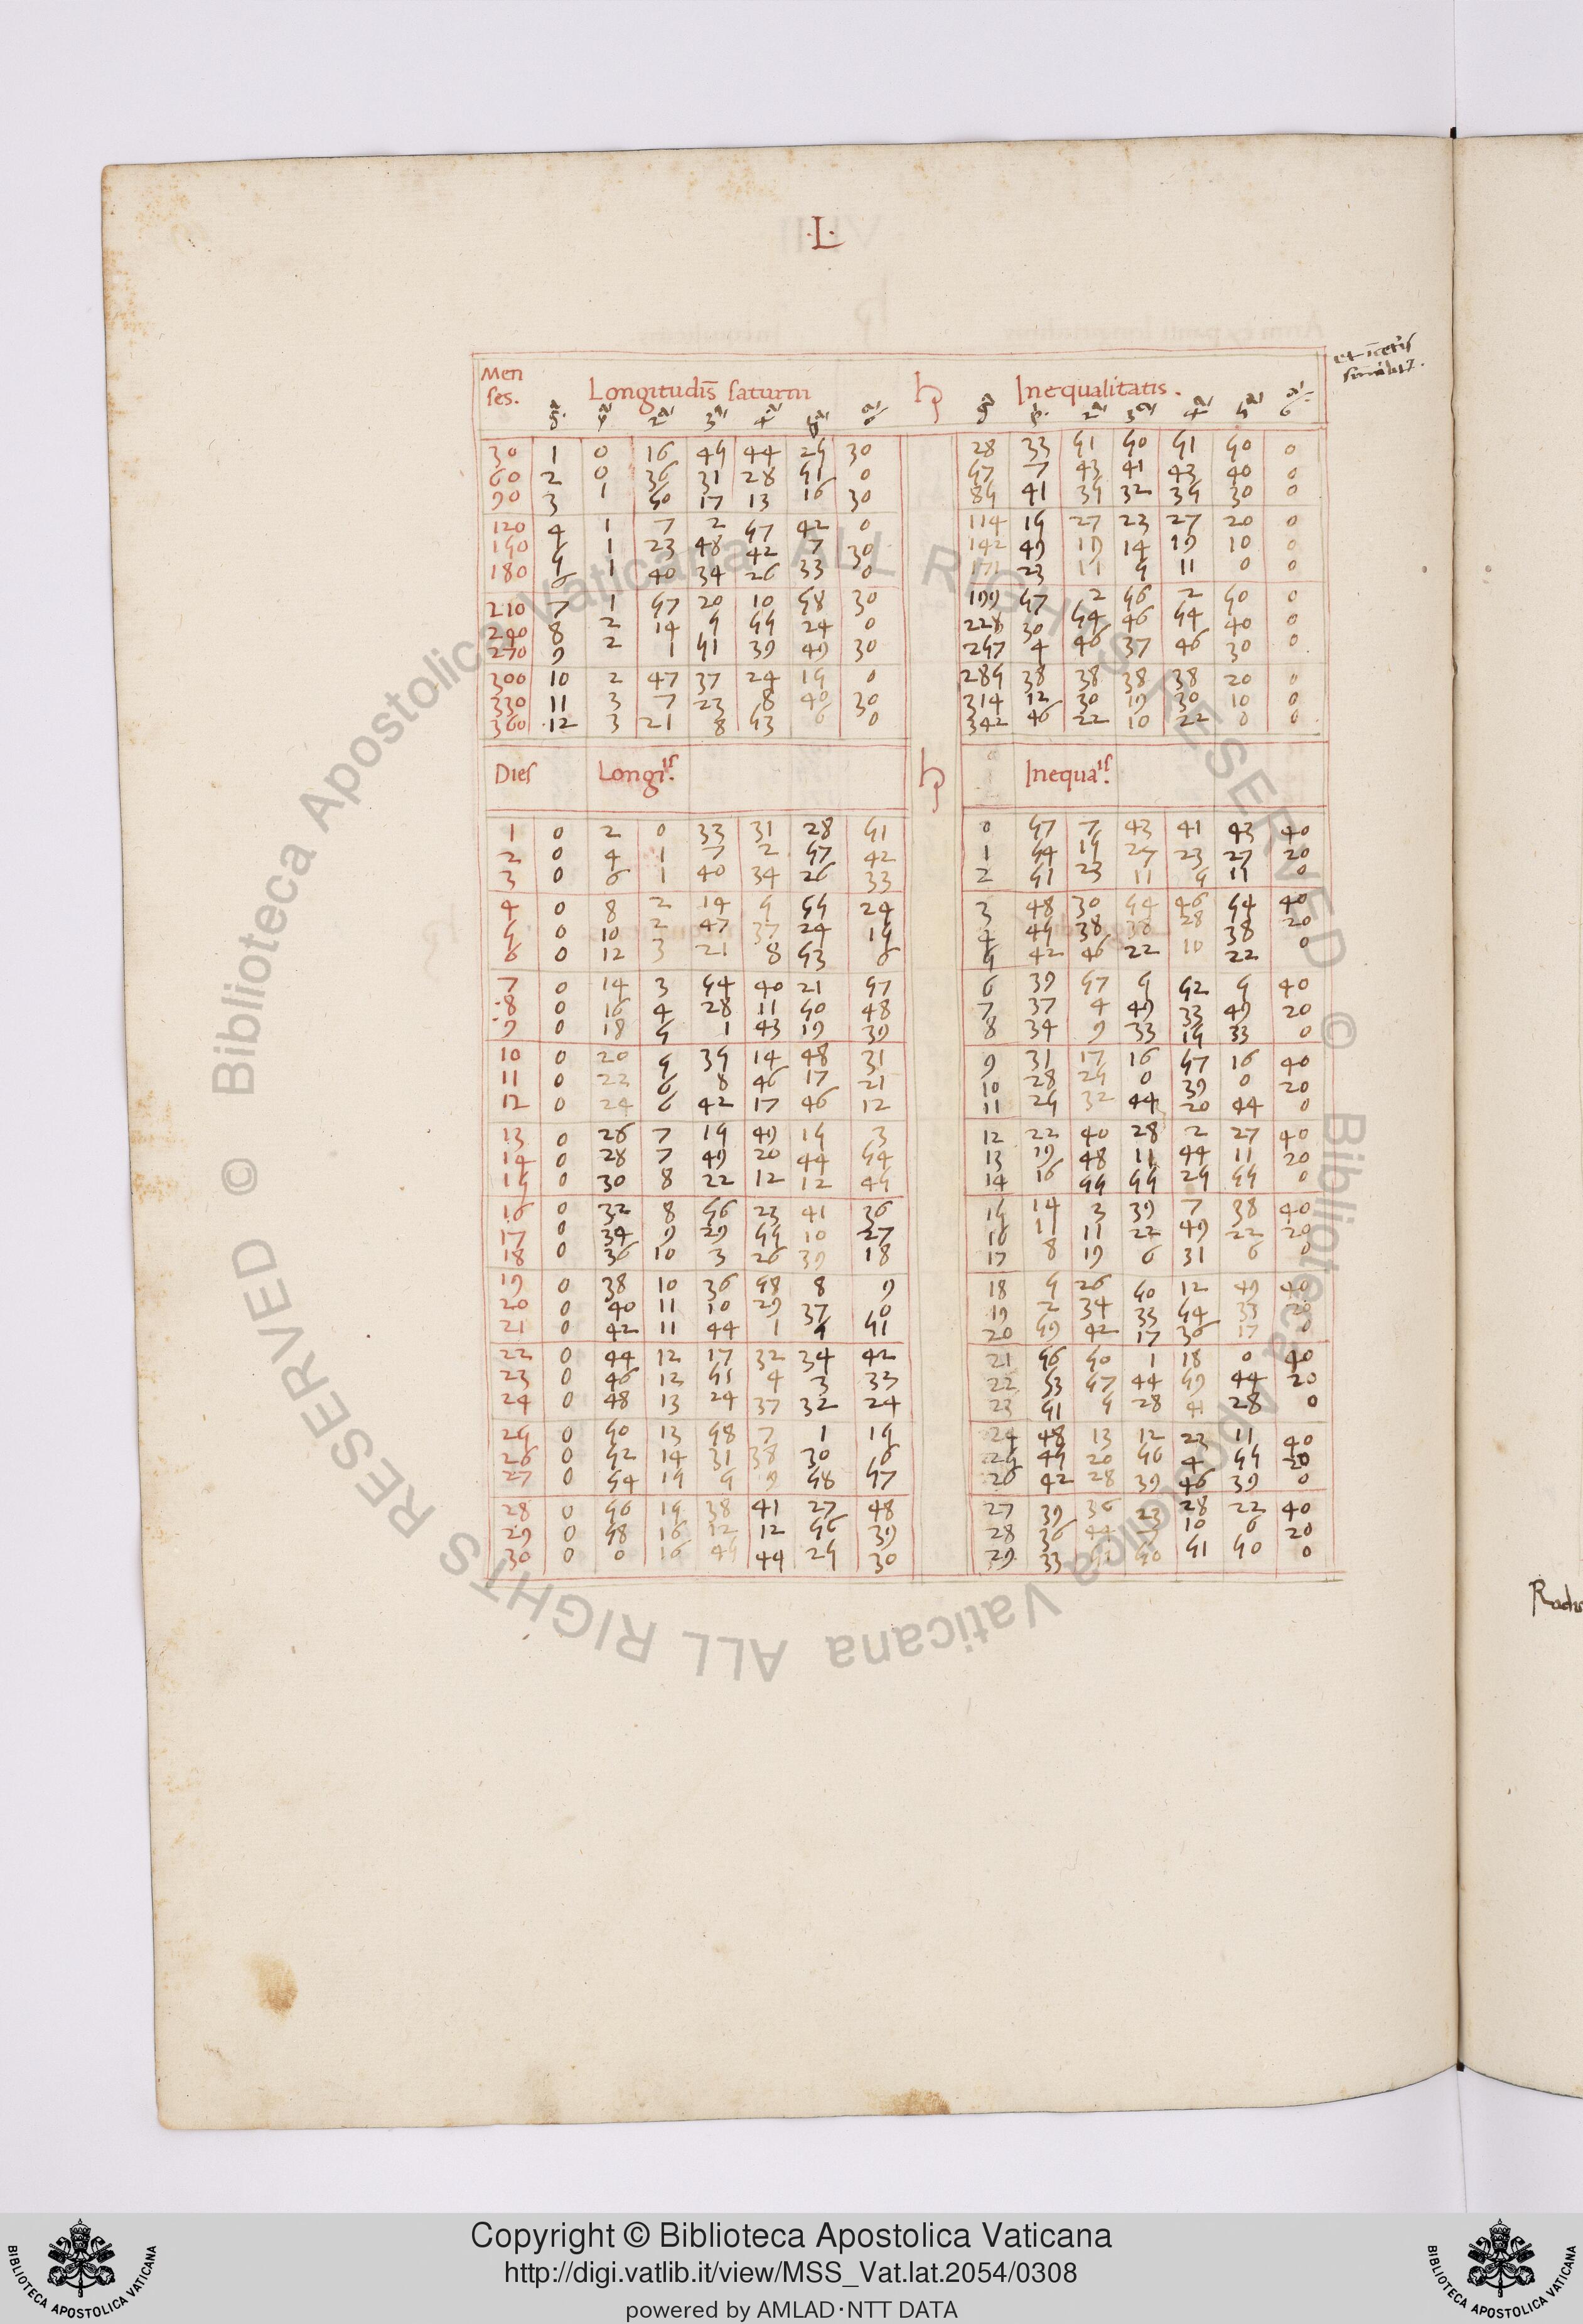 ·L·
et in ceteris similibus.
Menses. Longitudis saturni ♄ Inequalitatis.
30 1 0 16 45 44 25 30 28 33 51 50 51 50 0
60 2 0 36 31 28 51 0 57 7 43 41 43 40 0
90 3 1 50 17 13 16 30 85 41 35 32 35 30 0
120 4 1 7 2 57 42 0 114 15 27 23 27 20 0
150 5 1 23 48 42 7 30 142 49 19 14 19 10 0
180 6 1 40 34 26 33 0 171 23 11 5 11 0 0
210 7 1 57 20 10 58 30 199 57 2 56 2 50 0
240 8 2 14 5 55 24 0 228 30 54 46 54 40 0
270 9 2 1 51 39 49 30 257 4 46 37 46 30 0
300 10 2 47 37 24 15 0 285 38 38 38 38 20 0
330 11 3 7 23 8 40 30 314 12 30 19 30 10 0
360 12 3 21 8 53 6 0 342 46 22 10 22 0 0
Dies Longitis. ♄ Inequatis.
1 0 2 0 33 31 28 51 0 57 7 43 41 43 40
2 0 4 1 7 2 57 42 1 54 15 27 23 27 20
3 0 6 1 40 34 26 33 2 51 23 11 5 11 0
4 0 8 2 14 5 55 24 3 48 30 54 46 54 40
5 0 10 2 47 37 24 15 4 45 38 38 28 38 20
6 0 12 3 21 8 53 6 5 42 46 22 10 22 0
7 0 14 3 54 40 21 57 6 39 57 5 52 5 40
8 0 16 4 28 11 50 48 7 37 4 49 33 49 20
9 0 18 5 1 43 19 39 8 34 9 33 15 33 0
10 0 20 5 35 14 48 31 9 31 17 16 57 16 40
11 0 22 6 8 46 17 21 10 28 25 0 39 0 20
12 0 24 6 42 17 46 12 11 25 32 44 20 44 0
13 0 26 7 15 49 15 3 12 22 40 28 2 27 40
14 0 28 7 49 20 44 54 13 19 48 11 44 11 20
15 0 30 8 22 12 12 45 14 16 55 55 25 55 0
16 0 32 8 56 23 41 36 15 14 3 39 7 38 40
17 0 34 9 29 55 10 27 16 11 11 22 49 22 20
18 0 36 10 3 26 39 18 17 8 19 6 31 6 0
19 0 38 10 36 58 8 9 18 5 26 50 12 49 40
20 0 40 11 10 29 37 0 19 2 34 33 54 33 20
21 0 42 11 44 1 5 51 20 59 42 17 36 17 0
22 0 44 12 17 32 34 42 21 56 50 1 18 0 40
23 0 46 12 51 4 3 33 22 53 57 44 59 44 20
24 0 48 13 24 37 32 24 23 51 5 28 41 28 0
25 0 50 13 58 7 1 15 24 48 13 12 23 11 40
26 0 52 14 31 38 30 6 25 45 20 56 4 55 20
27 0 54 15 5 9 58 57 26 42 28 39 46 39 0
28 0 56 15 38 41 27 48 27 39 36 23 28 22 40
29 0 58 16 12 12 56 39 28 36 44 7 10 6 20
30 0 0 16 45 44 25 30 29 33 51 50 51 50 0
Copyright © Biblioteca Apostolica Vaticana
http://digi.vatlib.it/view/MSS_Vat.lat.2054/0308
powered by AMLAD·NTT DATA
BIBLIOTECA APOSTOLICA VATICANA
BIBLIOTECA APOSTOLICA VATICANA
© Biblioteca Apostolica Vaticana ALL RIGHTS RESERVED © Biblioteca Apostolica Vaticana ALL RIGHTS RESERVED